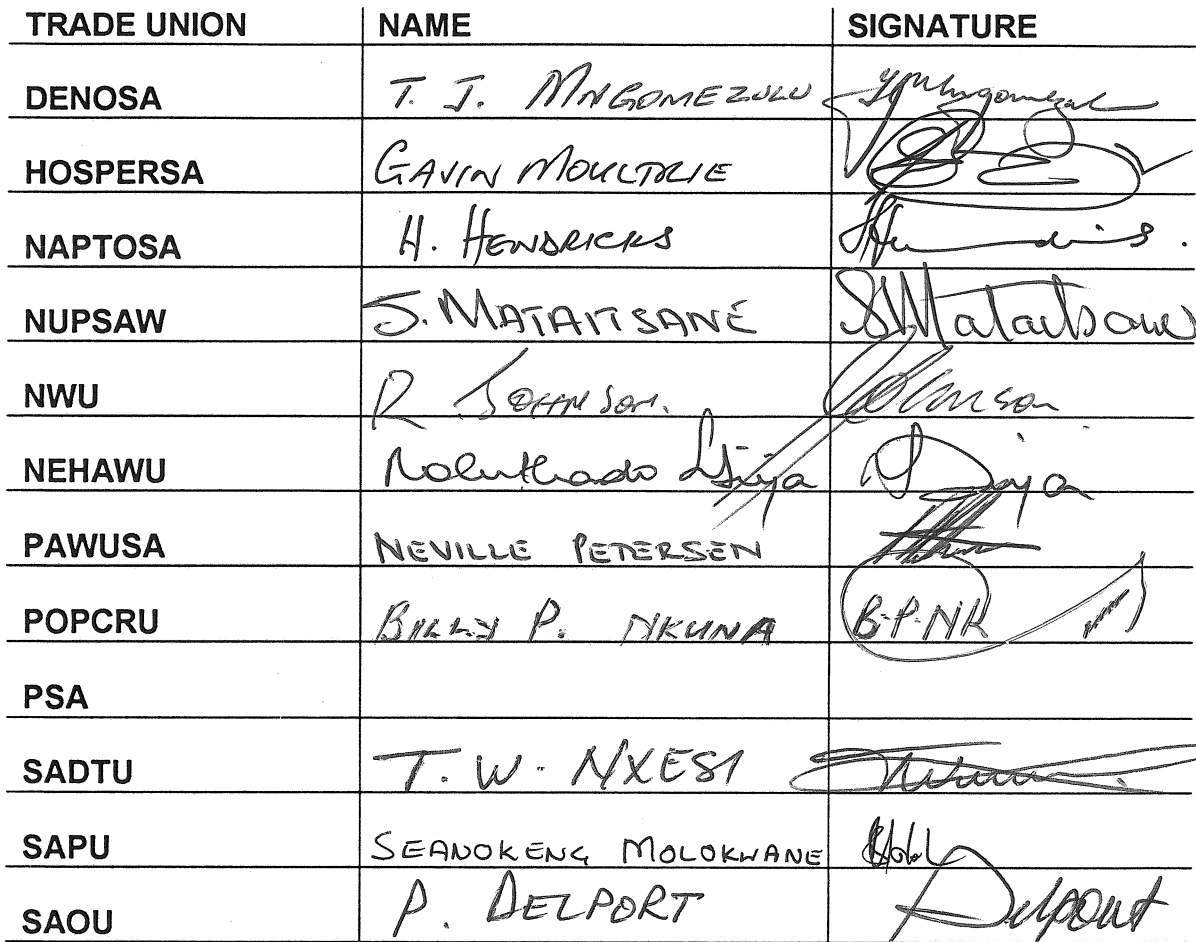 TRADE UNION NAME SIGNATURE
DENOSA T. J. MNGOMEZULU
HOSPERSA GAVIN MOULTRIE
NAPTOSA H. HENDRICKS
NUPSAW S. MATAITSANE SMataitsane
NWU R JOHNSON. Johnson
NEHAWU
PAWUSA NEVILLE PETERSEN
POPCRU BILLY P. NKUNA B.P.NK
PSA
SADTU T. W. NXESI
SAPU SEANOKENG MOLOKWANE
SAOU P. DELPORT Delport